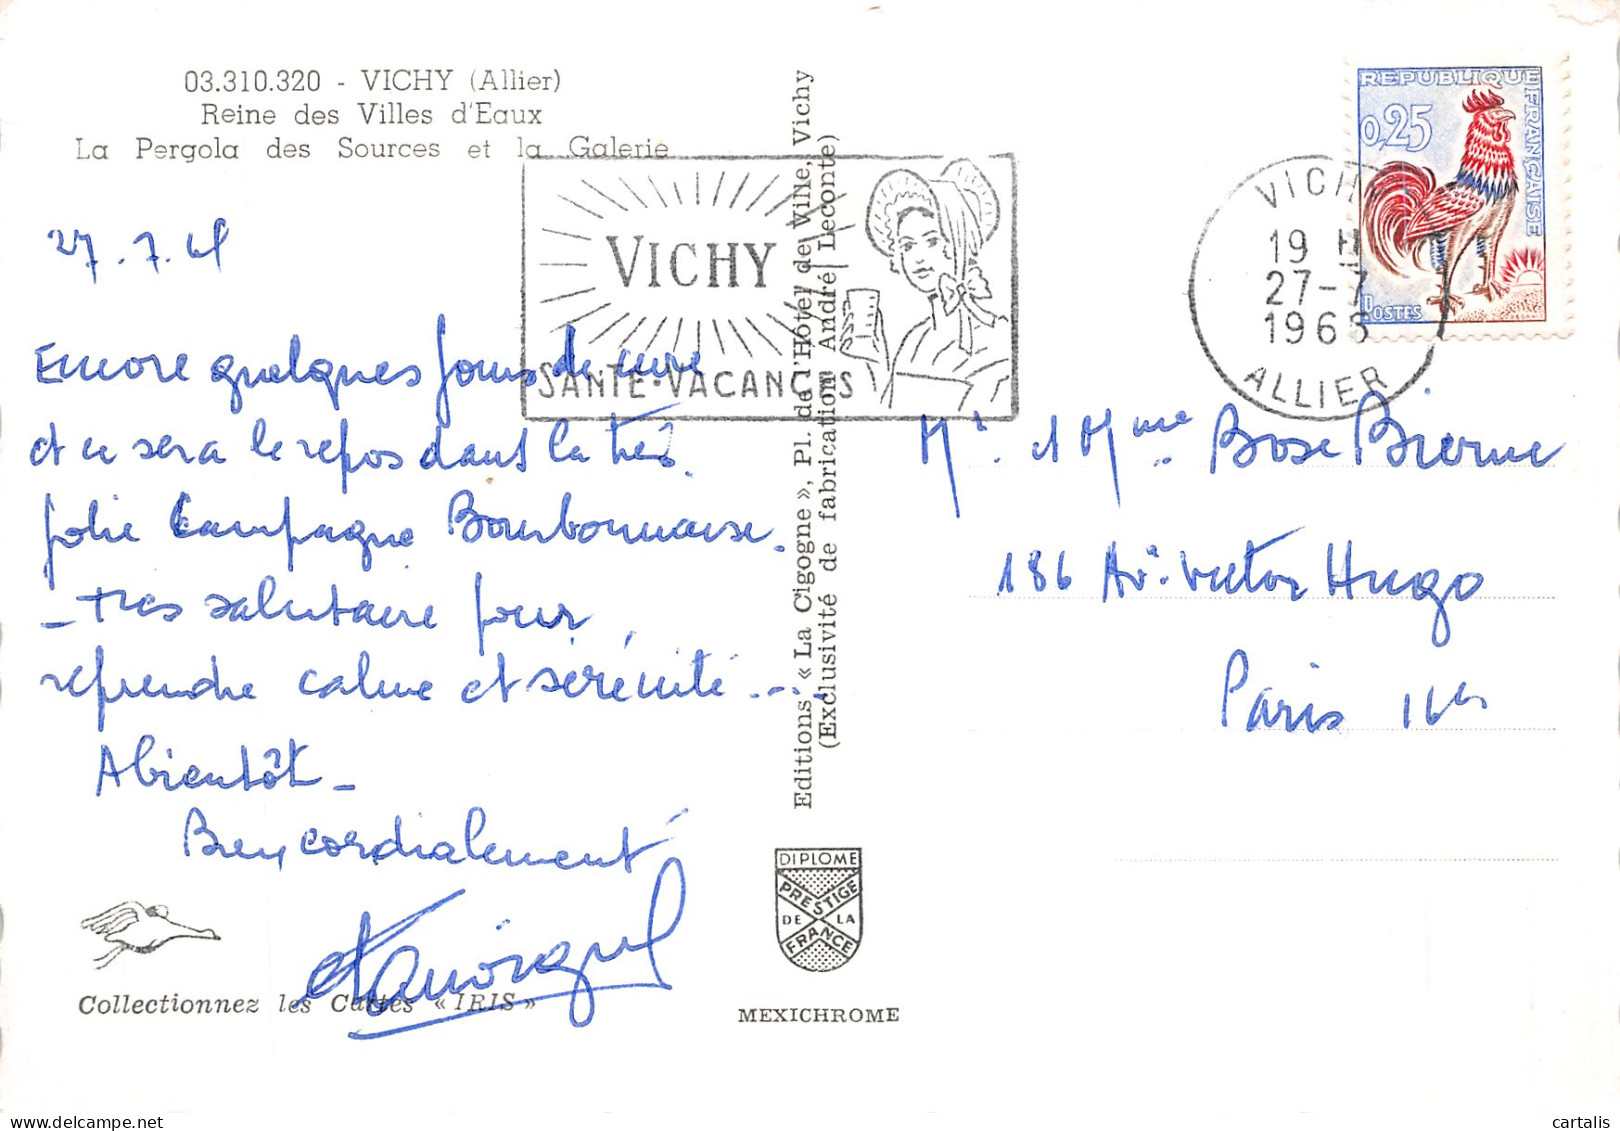 03.310.320 - VICHY (Allier)
Reine des Villes d'Eaux
La Pergola des Sources et la Galerie
27.7.65
Encore quelques jours de cure
et ce sera le repos dans la très
jolie Campagne Bourbonnaise.
- très salutaire pour
reprendre calme et sérénité ....
A bientôt -
Bien cordialement
Collectionnez les Cartes « IRIS »
Editions « La Cigogne », Pl. de l'Hôtel de Ville, Vichy
(Exclusivité de fabrication André Leconte)
VICHY
SANTÉ·VACANCES
DIPLOME
PRESTIGE
DE LA
FRANCE
MEXICHROME
VICHY
19 H
27-7
1965
ALLIER
REPUBLIQUE
FRANÇAISE
0,25
POSTES
Mr. et Mme Bose Bierne
186 Av. Victor Hugo
Paris 16
cartalis